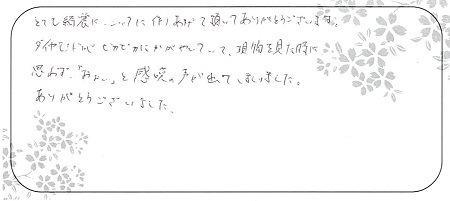 とても綺麗に作りあげて頂いてありがとうございます。
ダイヤモンドがピカピカにかがやいていて、現物を見た時に
思わず、「おぉ〜」と感嘆の声が出てしまいました。
ありがとうございました。